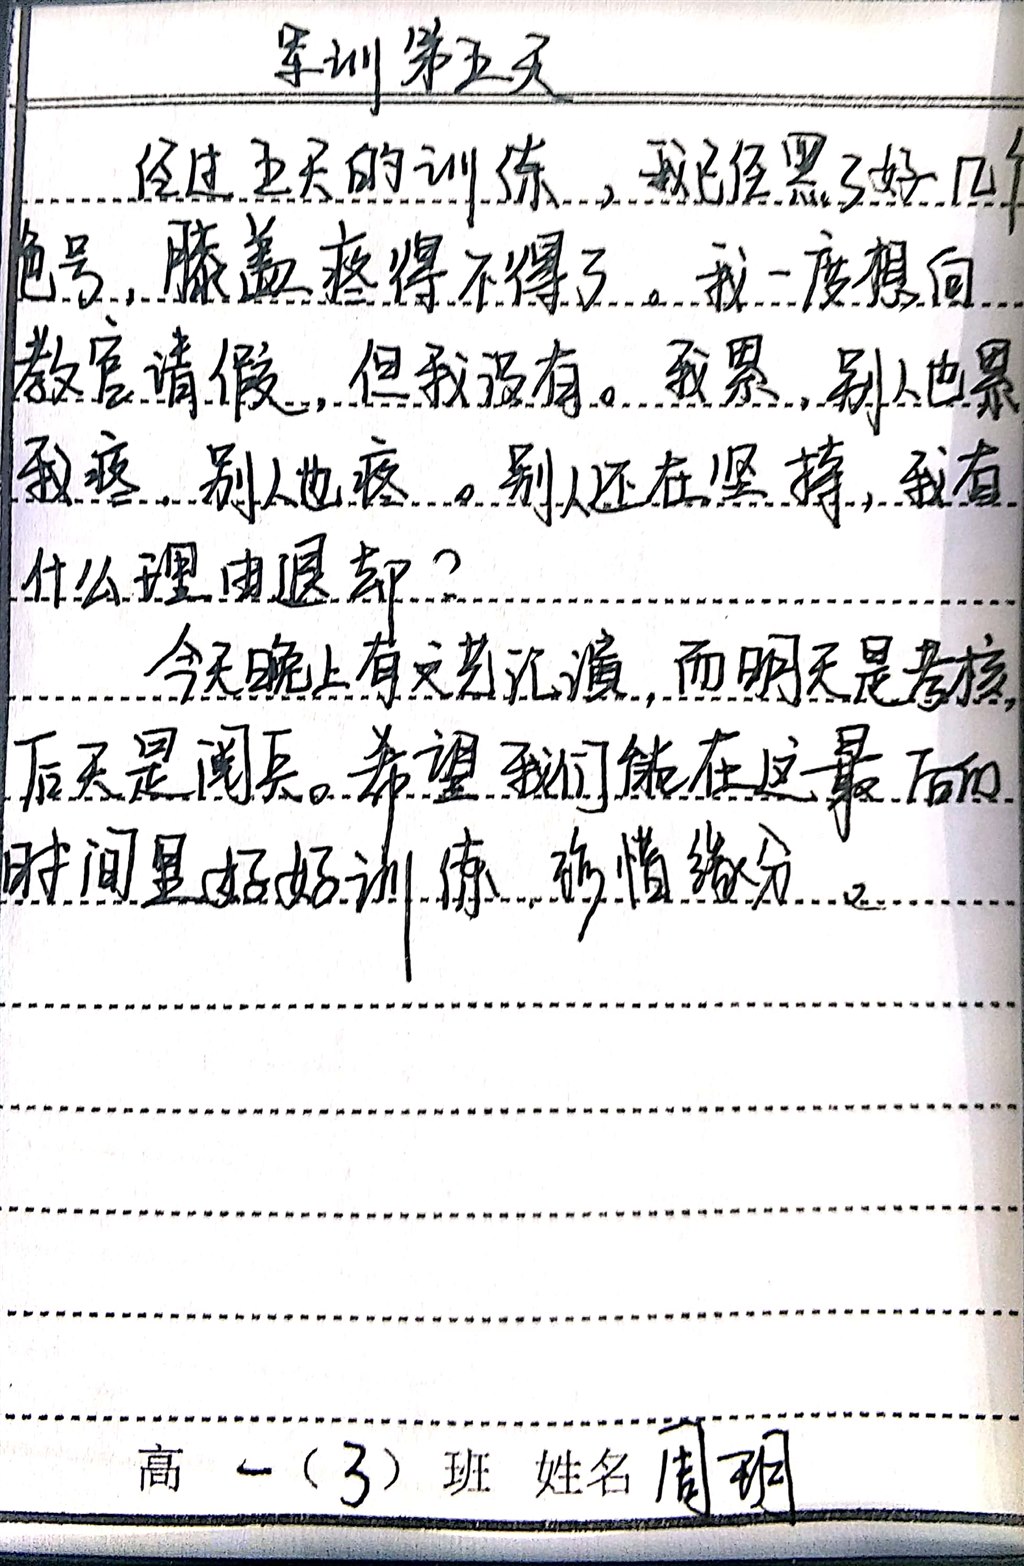 军训第五天
经过五天的训练，我已经黑了好几个
色号，膝盖疼得不得了。我一度想向
教官请假，但我没有。我累，别人也累
我疼，别人也疼。别人还在坚持，我有
什么理由退却？
今天晚上有文艺汇演，而明天是考核，
后天是阅兵。希望我们能在这最后的
时间里好好训练，珍惜缘分。
高一（3）班 姓名 周玥